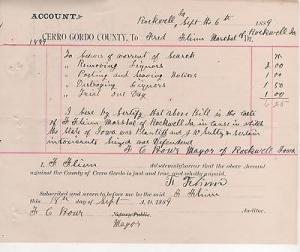 ACCOUNT.
Rockwell, Ia Sept the 6th 1889
CERRO GORDO COUNTY, To Fred Flinn Marshal of Rockwell Ia Dr.
1889
To Service of warrent of Search
" Removing Liquors 1 00
" Posting and Serving Notices 1 00
" Destroying Liquors 1 50
" Trial one Day 1 00
I here by Certify that above Bill is the costs
of F Flinn Marshal of Rockwell Ia in cause in which
the State of Iowa was Plaintiff and J W & certain
intoxicants Seized was Defendant
F C Mayor of Rockwell Iowa
I, F Flinn do solemnly swear that the above Account
against the County of Cerro Gordo is just and true and wholly unpaid.
F Flinn
Subscribed and sworn to before me by the said F Flinn
this 18th day of Sept A.D. 1889
F C Notary Public. Auditor.
Mayor